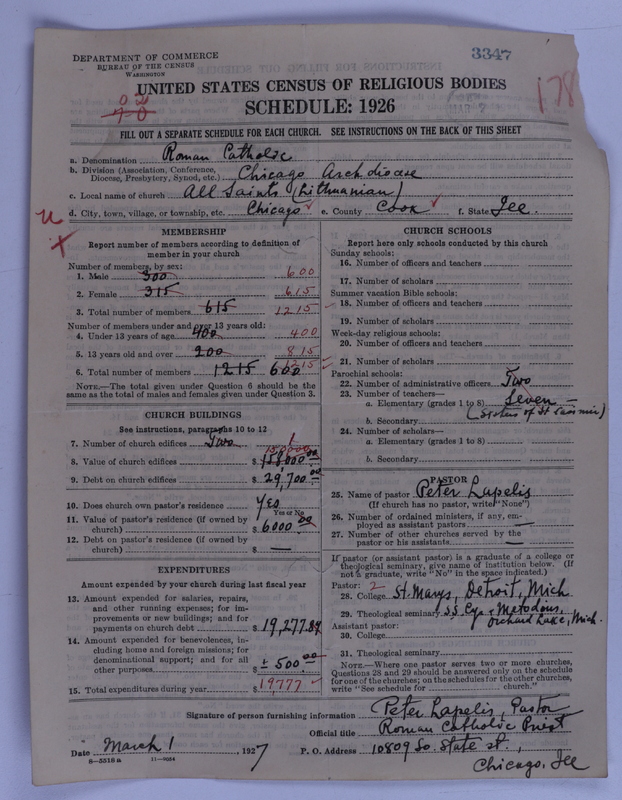 DEPARTMENT OF COMMERCE
BUREAU OF THE CENSUS
WASHINGTON
3347
178
UNITED STATES CENSUS OF RELIGIOUS BODIES
SCHEDULE: 1926
FILL OUT A SEPARATE SCHEDULE FOR EACH CHURCH. SEE INSTRUCTIONS ON THE BACK OF THIS SHEET
a. Denomination Roman Catholic
b. Division (Association, Conference, Diocese, Presbytery, Synod, etc.) Chicago Archdiocese
c. Local name of church All Saints (Lithuanian)
d. City, town, village, or township, etc. Chicago e. County Cook f. State Ill.
MEMBERSHIP
Report number of members according to definition of
member in your church
Number of members, by sex:
1. Male 300 600
2. Female 315 615
3. Total number of members 615 1215
Number of members under and over 13 years old:
4. Under 13 years of age 400 400
5. 13 years old and over 200 815
6. Total number of members 1215 600 1215
NOTE.—The total given under Question 6 should be the
same as the total of males and females given under Question 3.
CHURCH BUILDINGS
See instructions, paragraphs 10 to 12
7. Number of church edifices Two 1
8. Value of church edifices $ 158,000.00
9. Debt on church edifices $ 29,700.00
10. Does church own pastor's residence? Yes
Yes or No
11. Value of pastor's residence (if owned by
church) $ 6000.00
12. Debt on pastor's residence (if owned by
church) $ —
EXPENDITURES
Amount expended by your church during last fiscal year
13. Amount expended for salaries, repairs,
and other running expenses; for im-
provements or new buildings; and for
payments on church debt $ 19,277.84
14. Amount expended for benevolences, in-
cluding home and foreign missions; for
denominational support; and for all
other purposes $ ± 500.00
15. Total expenditures during year $ 19777
CHURCH SCHOOLS
Report here only schools conducted by this church
Sunday schools:
16. Number of officers and teachers
17. Number of scholars
Summer vacation Bible schools:
18. Number of officers and teachers
19. Number of scholars
Week-day religious schools:
20. Number of officers and teachers
21. Number of scholars
Parochial schools:
22. Number of administrative officers Two
23. Number of teachers—
a. Elementary (grades 1 to 8) Seven —
(Sisters of St Casimir)
b. Secondary
24. Number of scholars—
a. Elementary (grades 1 to 8)
b. Secondary
PASTOR
25. Name of pastor Peter Lapelis
(If church has no pastor, write "None")
26. Number of ordained ministers, if any, em-
ployed as assistant pastors —
27. Number of other churches served by the
pastor or his assistants —
If pastor (or assistant pastor) is a graduate of a college or
theological seminary, give name of institution below. (If
not a graduate, write "No" in the space indicated.)
Pastor: 2
28. College St. Marys, Detroit, Mich
29. Theological seminary S.S. Cyr. & Metodius,
Orchard Lake, Mich.
Assistant pastor:
30. College
31. Theological seminary
NOTE.—Where one pastor serves two or more churches,
Questions 28 and 29 should be answered only on the schedule
for one of the churches; on the schedules for the other churches,
write "See schedule for church."
Signature of person furnishing information Peter Lapelis, Pastor
Official title Roman Catholic Priest
Date March 1, 1927 P. O. Address 10809 So. State St.,
8—5518 a 11—9054
Chicago, Ill